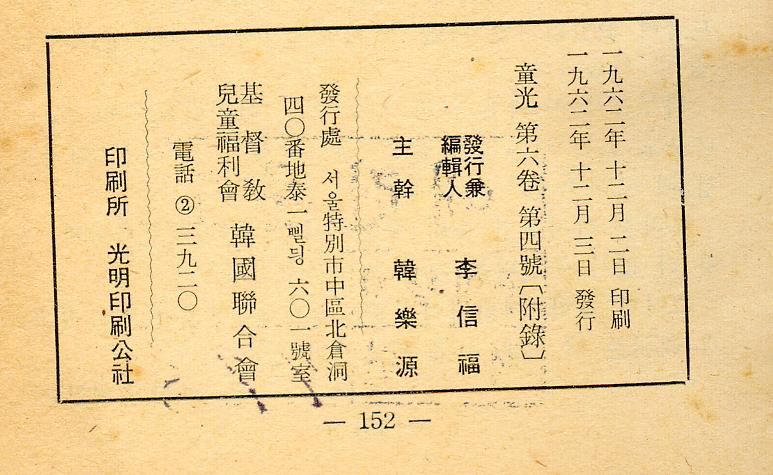 一九六二年 十二月 二日 印刷
一九六二年 十二月 三日 發行
童光 第六卷 第四號〔附錄〕
發行兼
編輯人 李信福
主幹 韓樂源
發行處 서울特別市中區北倉洞
四〇番地泰一삘딍 六〇一號室
基督敎
兒童福利會 韓國聯合會
電話 ② 三九二〇
印刷所 光明印刷公社
— 152 —